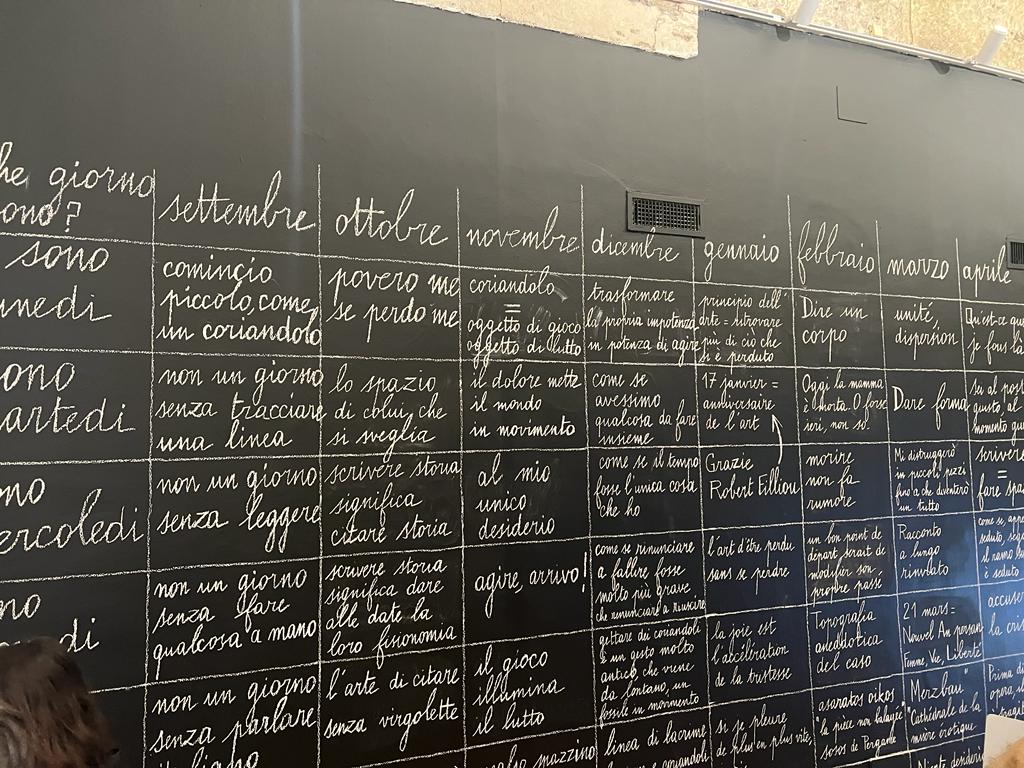 he giorno
ono?
settembre
ottobre
novembre
dicembre
gennaio
febbraio
marzo
aprile
sono
unedi
comincio
piccolo, come
un coriandolo
povero me
se perdo me
coriandolo
=
oggetto di gioco
oggetto di lutto
trasformare
la propria impotenza
in potenza di agire
principio dell'
arte = ritrovare
più di ciò che
si è perduto
Dire un
corpo
unité,
dispersion
Qu'est-ce que
je fous là
ono
artedi
non un giorno
senza tracciare
una linea
lo spazio
di colui che
si sveglia
il dolore mette
il mondo
in movimento
come se
avessimo
qualcosa da fare
insieme
17 janvier =
anniversaire
de l'art
Oggi la mamma
è morta. O forse
ieri, non so.
Dare forma
su al post
gusto, al
momento gu
no
ercoledi
non un giorno
senza leggere
scrivere storia
significa
citare storia
al mio
unico
desiderio
come se il tempo
fosse l'unica cosa
che ho
Grazie
Robert Filliou
morire
non fa
rumore
Mi distruggerò
in piccoli pezzi
fino a che diventerò
un tutto
scrivere
=
fare spaz
no
di
non un giorno
senza fare
qualcosa a mano
scrivere storia
significa dare
alle date la
loro fisionomia
agire, arrivo!
come se rinunciare
a fallire fosse
molto più grave
che rinunciare a riuscire
l'art d'être perdu
sans se perdre
un bon point de
départ serait de
modifier son
propre passé
Racconto
a lungo
rinviato
come se, appe
seduto, seg
il ramo su
è seduto
non un giorno
senza parlare
italiano
l'arte di citare
senza virgolette
il gioco
illumina
il lutto
gettare dei coriandoli
è un gesto molto
antico, che viene
da lontano, un
fossile in movimento
la joie est
l'accélération
de la tristesse
Topografia
aneddotica
del caso
21 mars =
Nouvel An persan
Femme, Vie, Liberté
accuser
la cris
mazzino
linea di lacrime
coriandoli
si je pleure
de plus en plus vite,
asaratos oikos
"la pièce non balayée"
sosos de Pergame
"Merzbau"
Cathédrale de la
misère érotique
Prima di
opera, il
Niente desideri